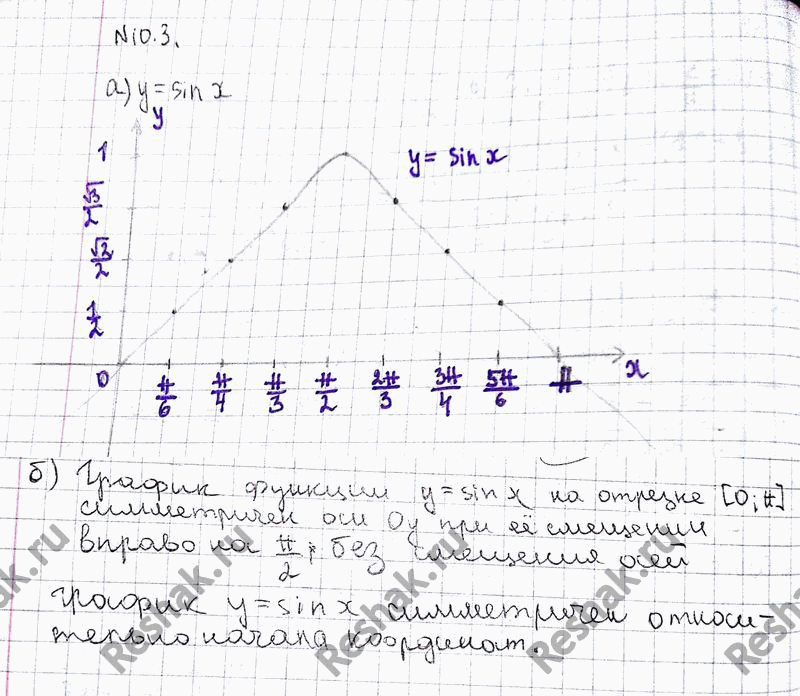 N10.3.
а) y = sin x
y
1
y = sin x
√3/2
√2/2
1/2
0 π/6 π/4 π/3 π/2 2π/3 3π/4 5π/6 π x
б) График функции y = sin x на отрезке [0; π]
симметричен оси Oy при её смещении
вправо на π/2; без смещения осей
график y = sin x симметричен относи-
тельно начала координат.
Reshak.ru
Reshak.ru
Reshak.ru
Reshak.ru
Reshak.ru